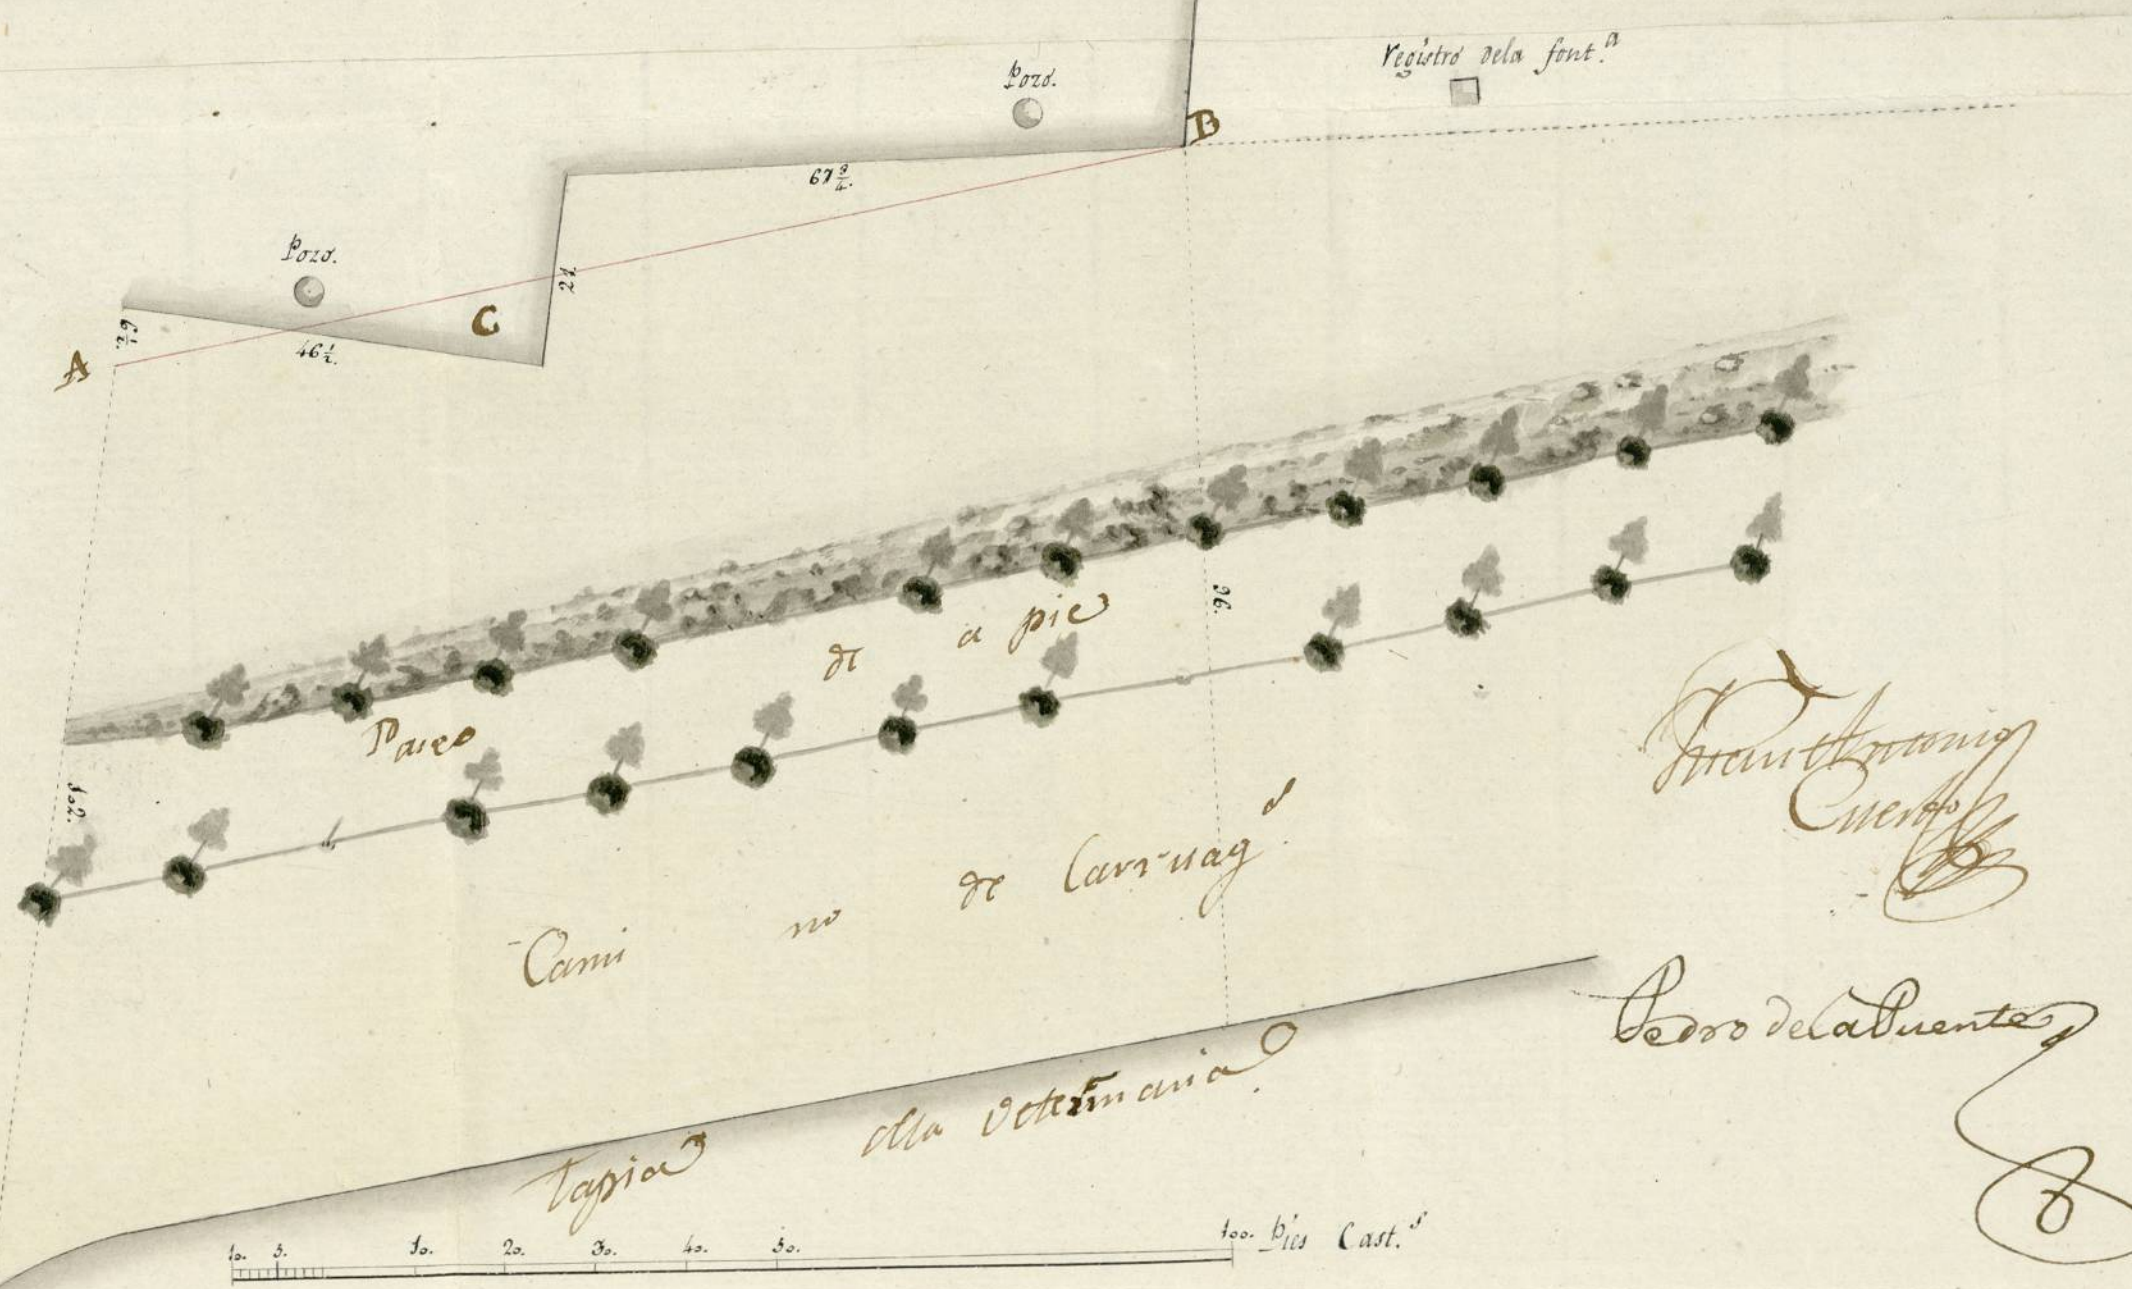 Registro dela font.ª
Pozo.
B
67 3/4.
Pozo.
21.
C
6 1/2.
A
46 1/2.
Paseo de a pie
96.
102.
Camino de Carruag.s
Juan Antonio
Cuerbo
Pedro de la Puente
Tapia dla Veterinaria.
10. 5. 10. 20. 30. 40. 50. 100. Pies Cast.s